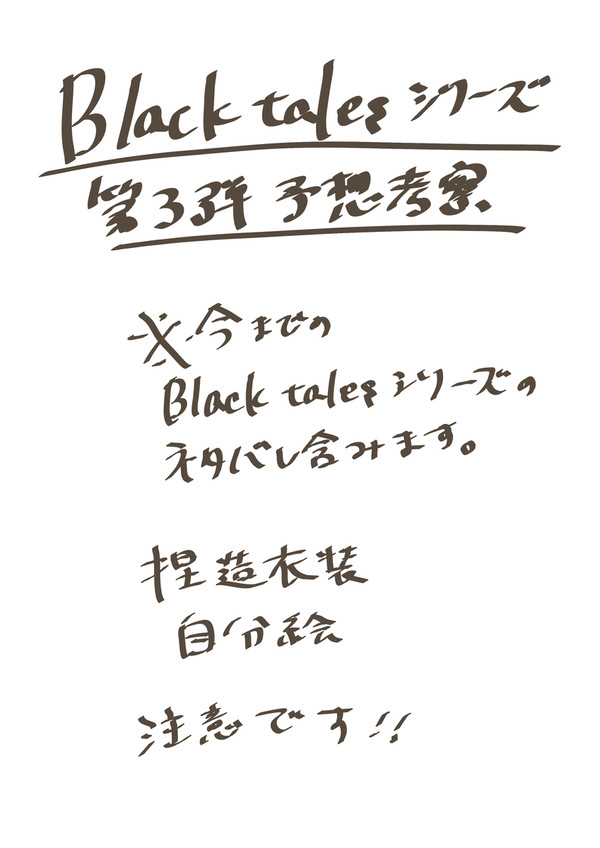 Black tales シリーズ
第3弾 予想考察
※今までの
Black tales シリーズの
ネタバレ含みます。
捏造衣装
自分絵
注意です!!